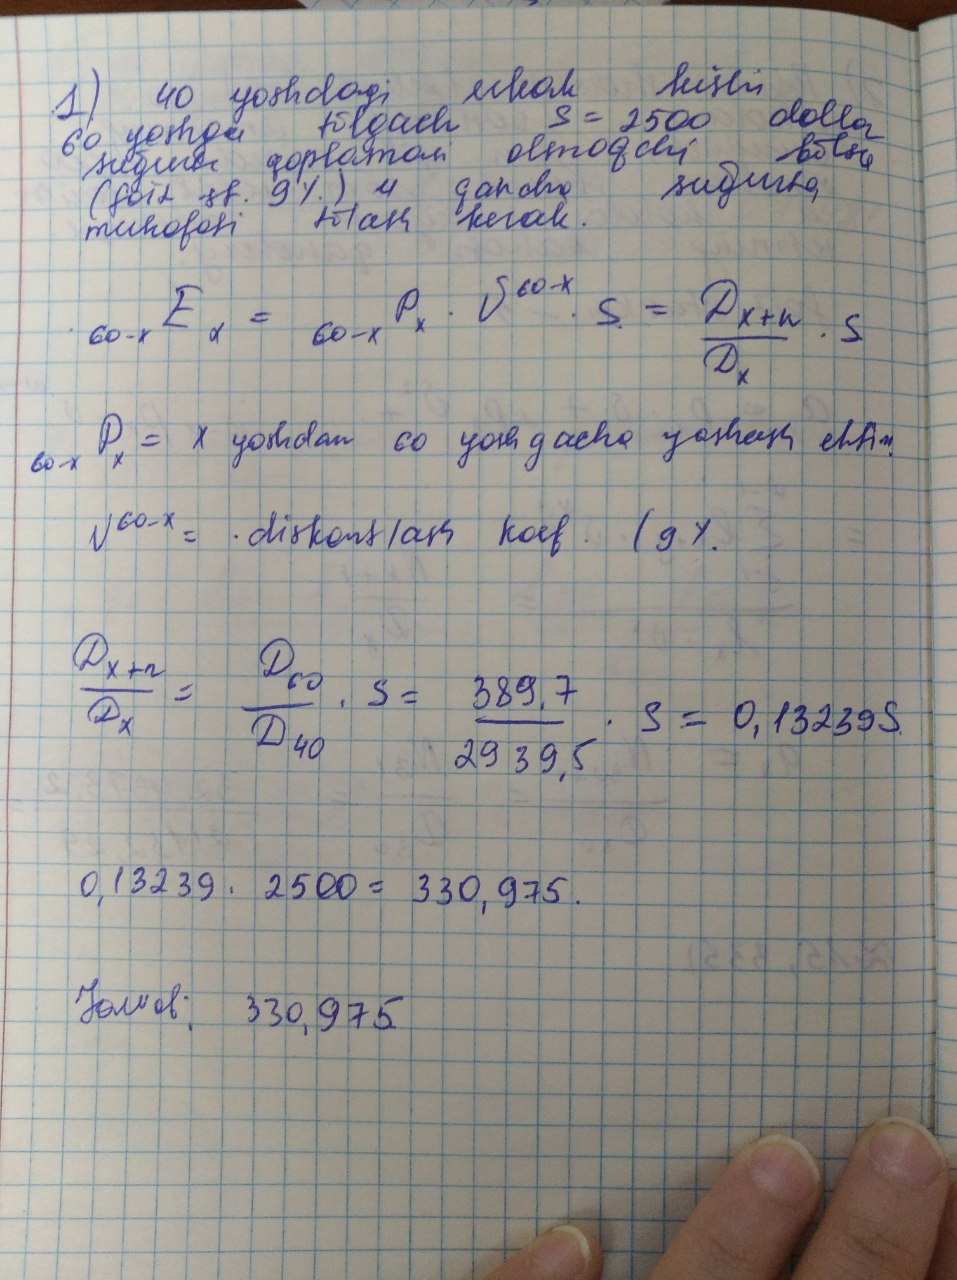 1) 40 yoshdagi erkak kishi
60 yoshga to'lgach S = 2500 dollar
sug'urta qoplamasi olmoqchi bo'lsa
(foiz st. 9%.) u qancha sug'urta
mukofoti to'lash kerak.
60-x E x = 60-x P x · V^60-x · S = D x+n / D x · S
60-x P x = x yoshdan 60 yoshgacha yashash eht.
V^60-x = diskontlash koef. (9%.
D x+n / D x = D 60 / D 40 · S = 389,7 / 2939,5 · S = 0,13239S
0,13239 · 2500 = 330,975.
Javob: 330,975